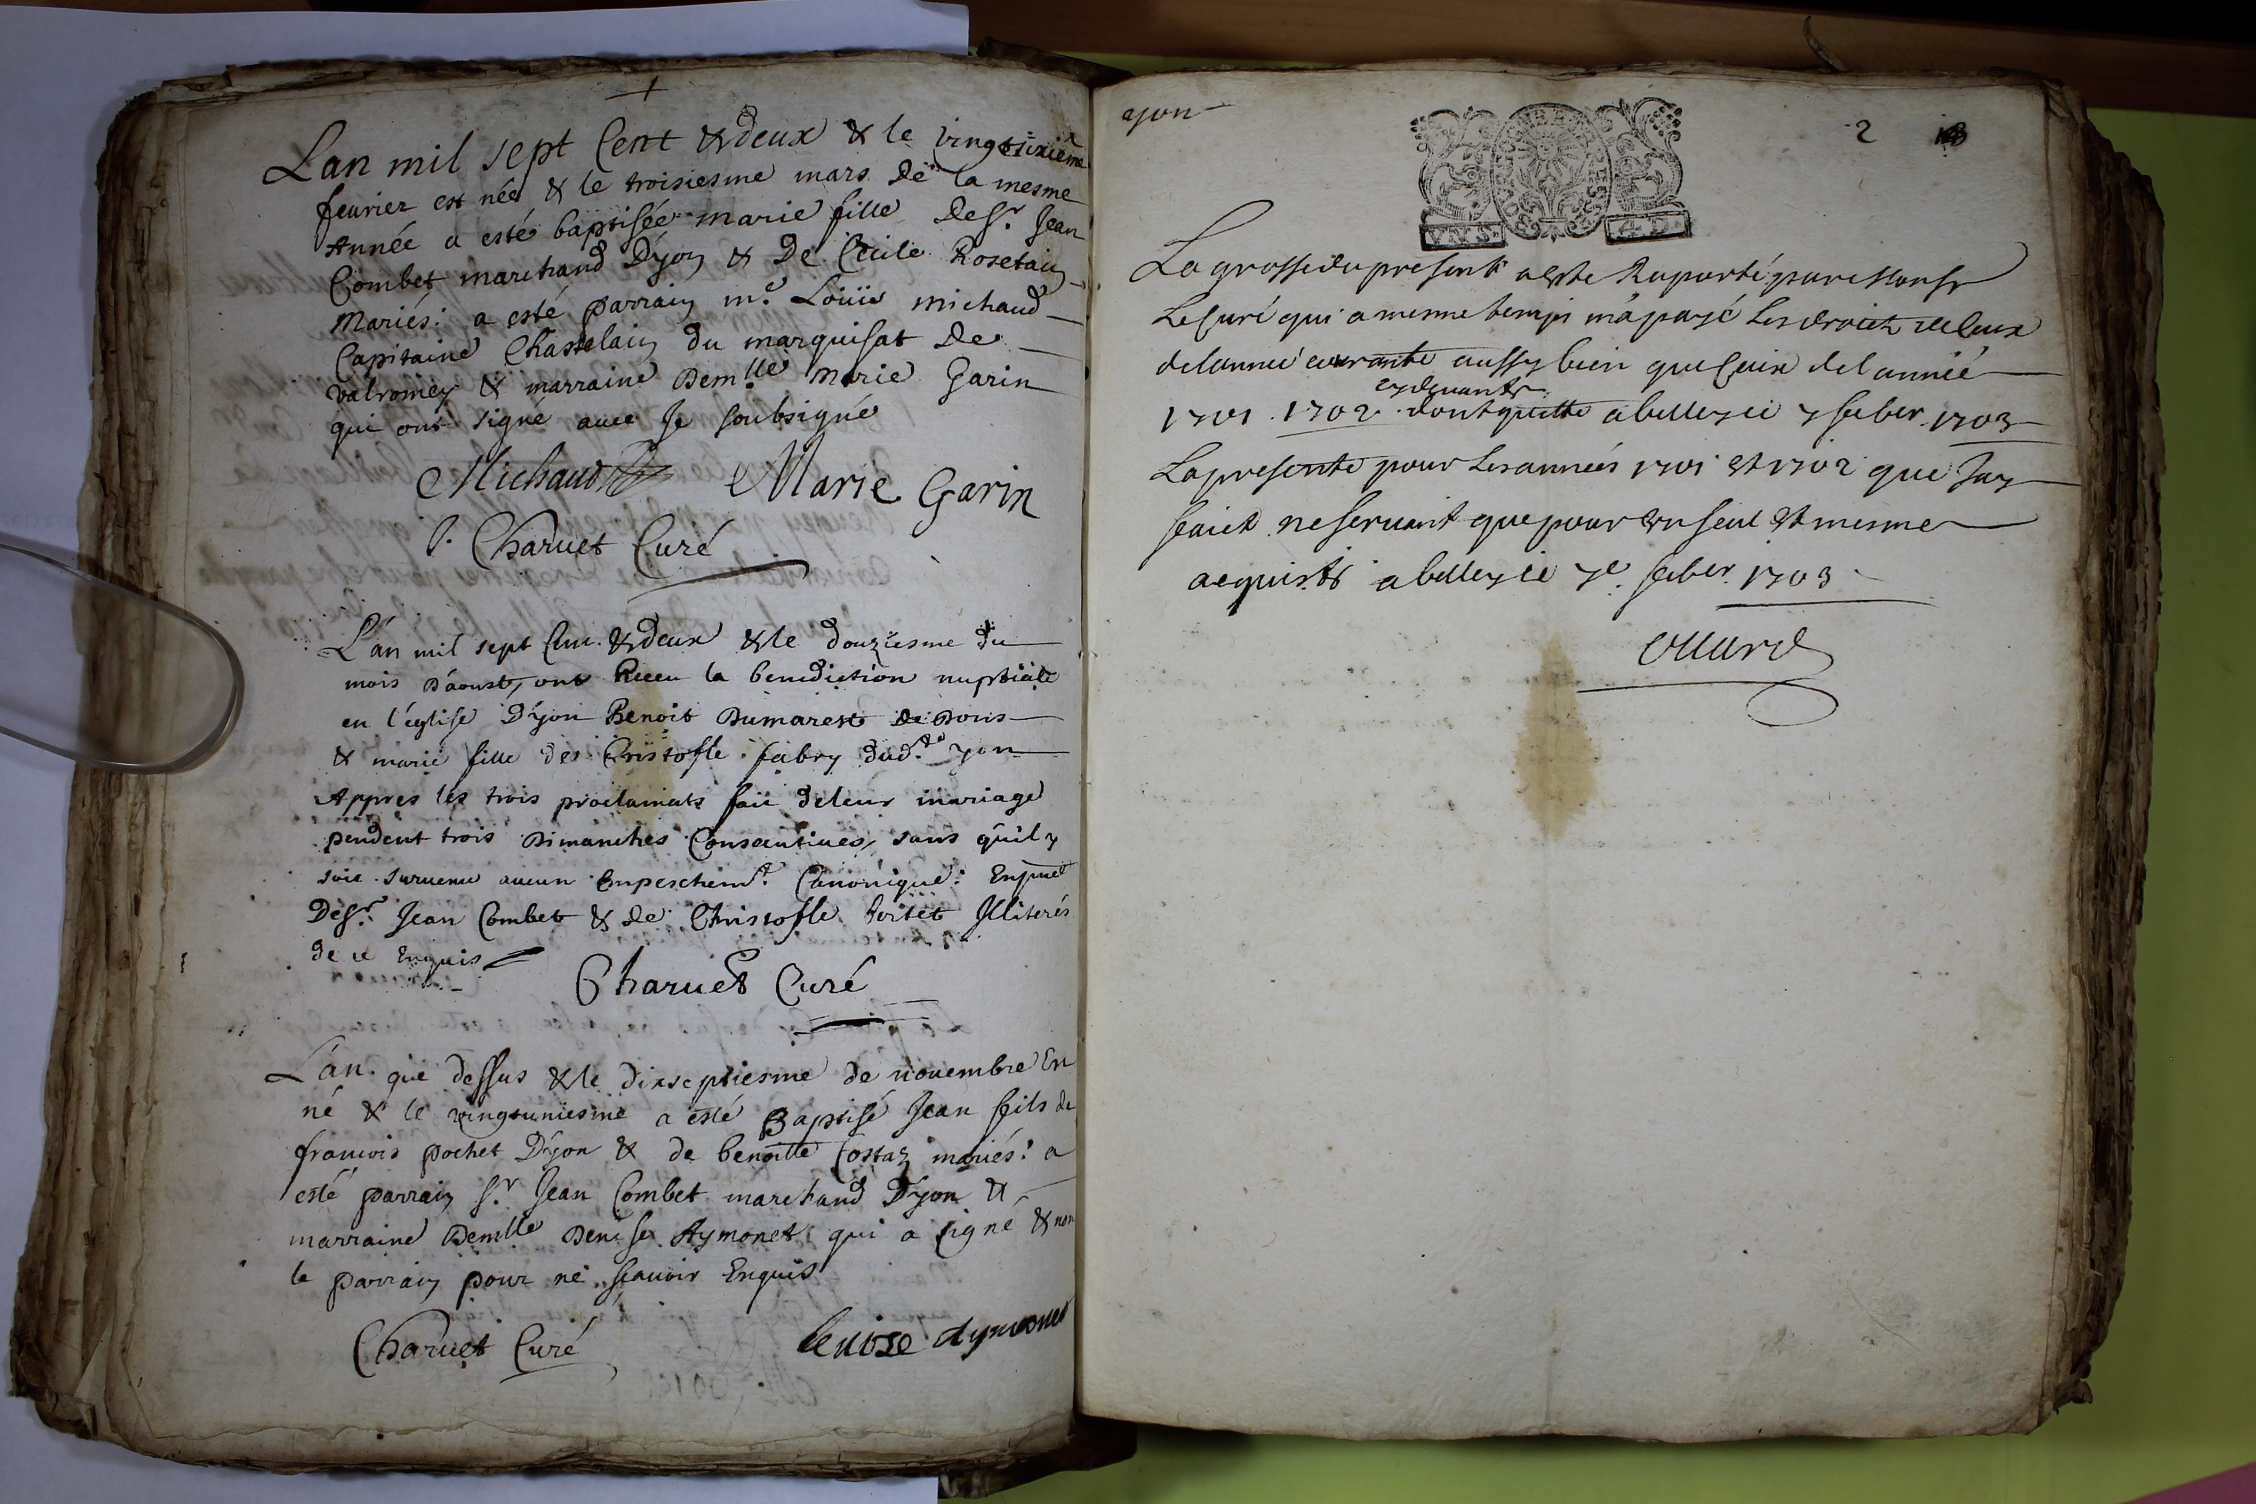 Lan mil sept Cent & deux & le vingtsixiéme
feurier est née & le troisiesme mars de la mesme
Année a esté baptisée marie fille de sr. Jean
Combet marchand D'yon & De Cecile Rosetain
Mariés: a esté parrain me. Loüis michaud
Capitaine Chastelain du marquisat de
valromey & marraine Demlle Marie Garin
qui ont signé auec Je soubsigné
Michaud Marie Garin
Charuet Curé
L'an mil sept Cen. & deux & le douziesme du
mois d'aoust, ont Receu la benediction nuptiale
en l'église D'yon Benoit Dumarest de Dons
& marie fille de Cristofle fabry dud.t yon
Appres les trois proclamats fait de leur mariage
pendent trois Dimanches Consecutiues, sans qu'il y
soit suruenu aucun Empeschemt. Canonique: En pnce
De sr. Jean Combet & de Christofle Illiterés
de ce Enquis
Charuet Curé
L'an que dessus & le dixseptiesme de nouembre En
né & le vingtuniesme a esté Baptisé Jean fils de
francois pochet D'yon & de benoitte Costaz mariés: a
esté parrain sr. Jean Combet marchand D'yon &
marraine Demlle Denise Aymonet qui a signé & non
le parrain pour ne scauoir Enquis
Charuet Curé denise aymonet
yon
2
La grosse du present a este Raporté par Monsr
Le Curé qui a mesme temps m'a payé Les droict de Ceux
de lannee courante aussy bien que Ceux de l'année
cy deuant
1701. 1702. dont quitte a belley ce 7 feber. 1703
La presente pour Les années 1701 et 1702 que Jay
faict ne seruant que pour un seul et mesme
acquist a belley ce 7e. feber. 1703